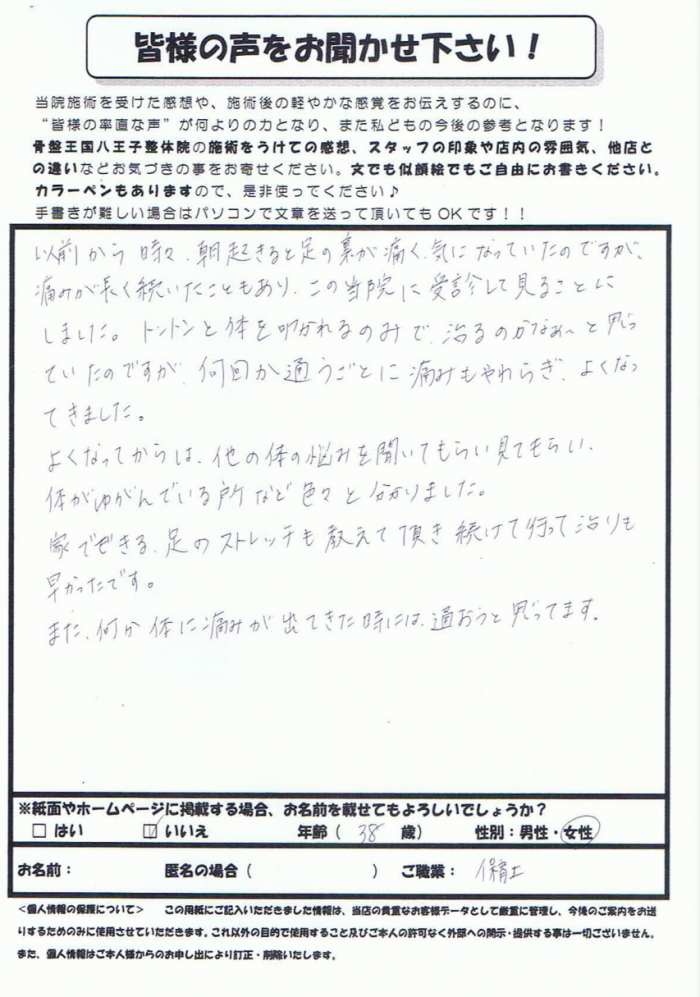 皆様の声をお聞かせ下さい！
当院施術を受けた感想や、施術後の軽やかな感覚をお伝えするのに、
“皆様の率直な声”が何よりの力となり、また私どもの今後の参考となります！
骨盤王国八王子整体院の施術をうけての感想、スタッフの印象や店内の雰囲気、他店と
の違いなどお気づきの事をお寄せください。文でも似顔絵でもご自由にお書きください。
カラーペンもありますので、是非使ってください♪
手書きが難しい場合はパソコンで文章を送って頂いてもOKです！！
以前から時々、朝起きると足の裏が痛く、気になっていたのですが、
痛みが長く続いたこともあり、この当院に受診して見ることに
しました。トントンと体を叩かれるのみで、治るのかなぁ～と思っ
ていたのですが、何回か通うごとに痛みもやわらぎ、よくなっ
てきました。
よくなってからは、他の体の悩みを聞いてもらい見てもらい、
体がゆがんでいる所など色々と分かりました。
家でできる、足のストレッチも教えて頂き続けて行って治りも
早かったです。
また、何か体に痛みが出てきた時には、通おうと思ってます。
※紙面やホームページに掲載する場合、お名前を載せてもよろしいでしょうか？
□ はい ☑ いいえ 年齢（ 38 歳） 性別：男性・女性
お名前： 匿名の場合（ ） ご職業： 保育士
＜個人情報の保護について＞ この用紙にご記入いただきました情報は、当店の貴重なお客様データとして厳重に管理し、今後のご案内をお送
りするためのみに使用させていただきます。これ以外の目的で使用すること及びご本人の許可なく外部への開示・提供する事は一切ございません。
また、個人情報はご本人様からのお申し出により訂正・削除いたします。